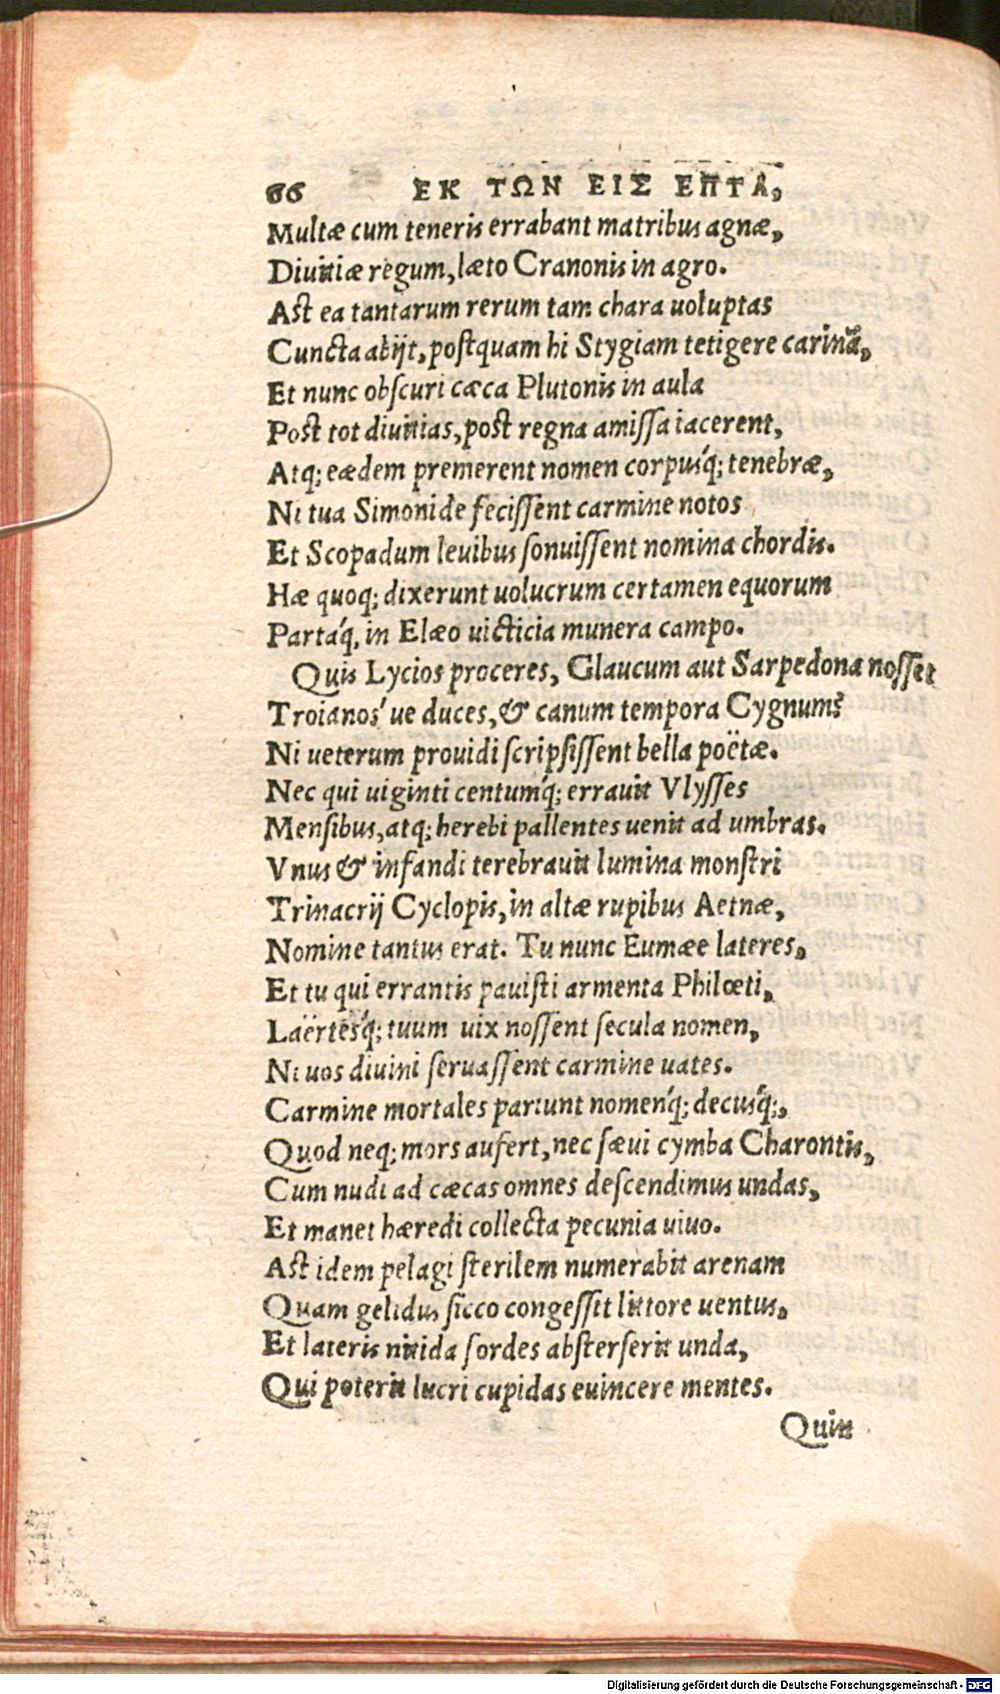 66 ΕΚ ΤΩΝ ΕΙΣ ΕΠΤΑ,
Multæ cum teneris errabant matribus agnæ,
Diuitiæ regum, læto Cranonis in agro.
Ast ea tantarum rerum tam chara uoluptas
Cuncta abijt, postquam hi Stygiam tetigere carinã,
Et nunc obscuri cæca Plutonis in aula
Post tot diuitias, post regna amissa iacerent,
Atq; eædem premerent nomen corpusq́; tenebræ,
Ni tua Simonide fecissent carmine notos
Et Scopadum leuibus sonuissent nomina chordis.
Hæ quoq; dixerunt uolucrum certamen equorum
Partaq́, in Elæo uicticia munera campo.
Quis Lycios proceres, Glaucum aut Sarpedona nosset
Troianos' ue duces, & canum tempora Cygnum?
Ni ueterum prouidi scripsissent bella poëtæ.
Nec qui uiginti centumq́; errauit Vlysses
Mensibus, atq; herebi pallentes uenit ad umbras.
Vnus & infandi terebrauit lumina monstri
Trinacrij Cyclopis, in altæ rupibus Aetnæ,
Nomine tantus erat. Tu nunc Eumæe lateres,
Et tu qui errantis pauisti armenta Philœti,
Laërtesq́; tuum uix nossent secula nomen,
Ni uos diuini seruassent carmine uates.
Carmine mortales pariunt nomenq́; decusq́;,
Quod neq; mors aufert, nec sæui cymba Charontis,
Cum nudi ad cæcas omnes descendimus undas,
Et manet hæredi collecta pecunia uiuo.
Ast idem pelagi sterilem numerabit arenam
Quam gelidus sicco congessit littore uentus,
Et lateris nitida sordes absterserit unda,
Qui poterit lucri cupidas euincere mentes.
Quin
Digitalisierung gefördert durch die Deutsche Forschungsgemeinschaft - DFG